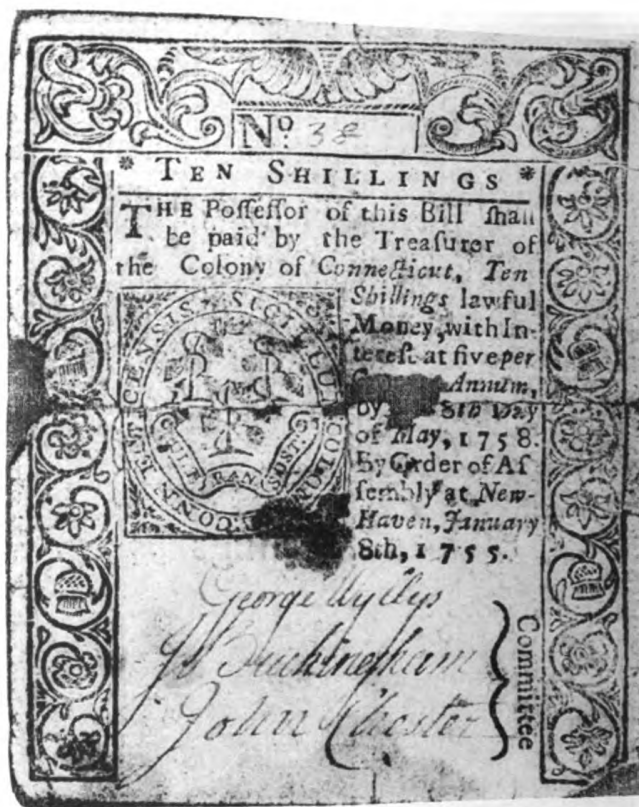 No. 38
* TEN SHILLINGS *
THE Poſſeſſor of this Bill ſhall
be paid by the Treaſurer of
the Colony of Connecticut, Ten
Shillings lawful
Money, with In-
tereſt at five per
Annum,
by 8th Day
of May, 1758.
By Order of Aſ
ſembly at New-
Haven, January
8th, 1755.
SIGILLUM COLONIÆ CONNECTICENSIS
QUI TRAN SUST
George Wyllys
Js Buckingham
John Chester
Committee